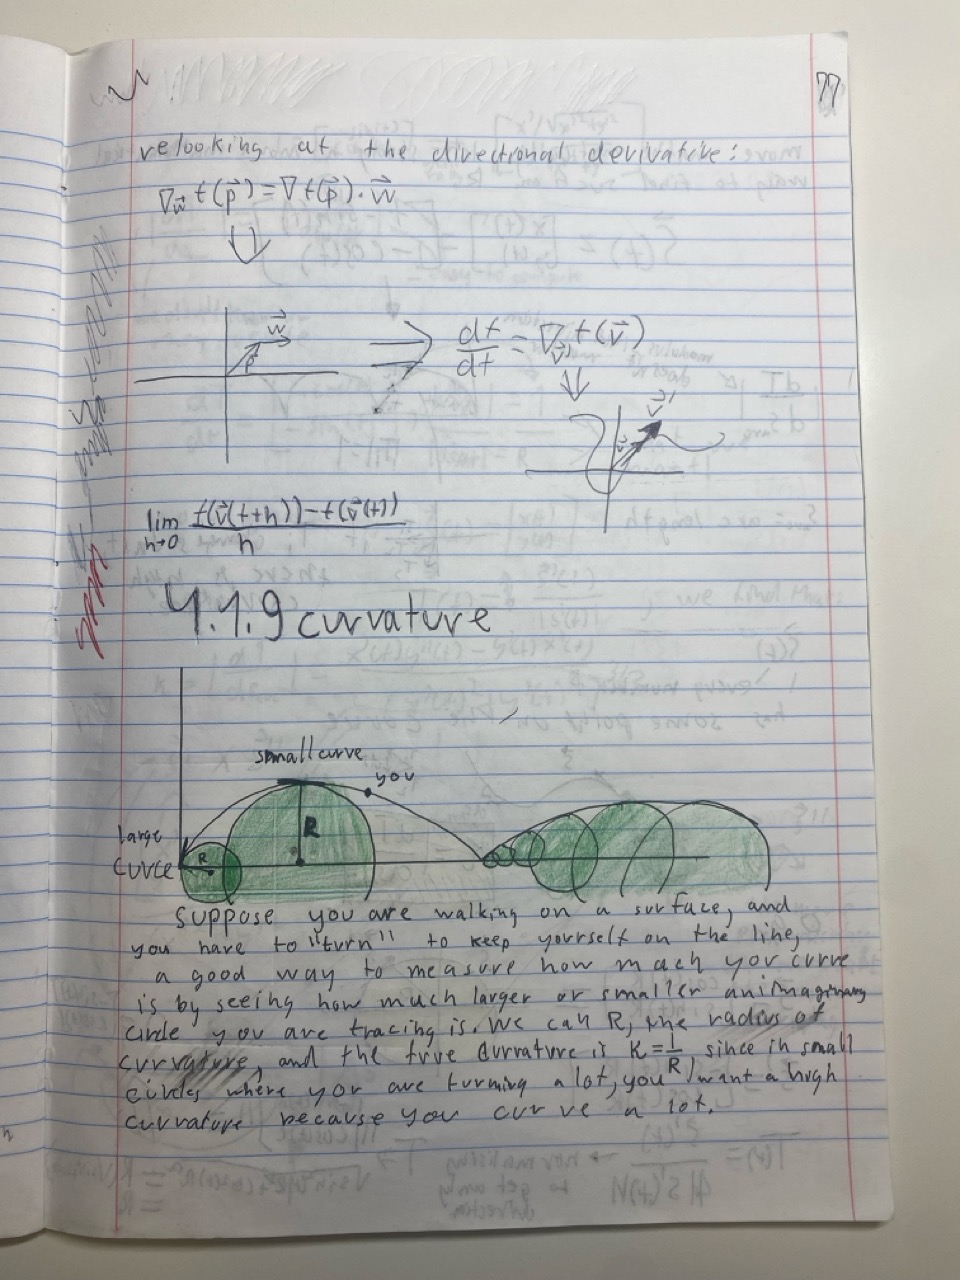 77
relooking at the directional derivative:
∇w⃗ f(p⃗) = ∇f(p⃗)·w⃗
w⃗
p⃗
df/dt = ∇v⃗' f(v⃗)
v⃗'
v⃗
lim h→0 f(v⃗(t+h))-f(v⃗(t))/h
4.1.9 curvature
small curve
you
R
large
curve
R
suppose you are walking on a surface, and
you have to "turn" to keep yourself on the line,
a good way to measure how mach you curve
is by seeing how much larger or smaller an imaginary
circle you are tracing is. We call R, the radius of
curvature, and the true curvature is K=1/R since in small
circles where you are turning a lot, you want a high
curvature because you curve a lot.